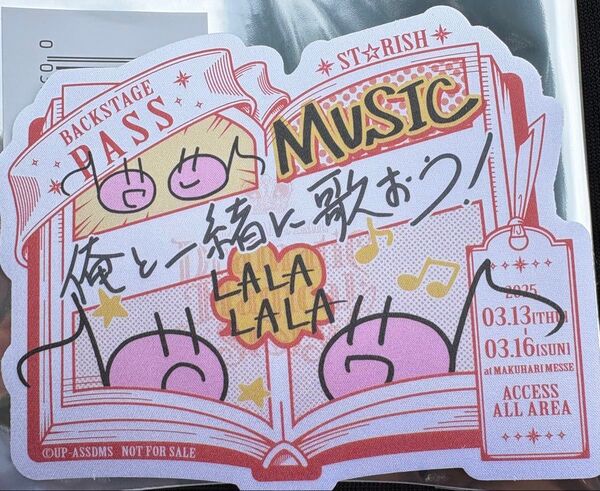 BACKSTAGE
PASS
ST☆RISH
MUSIC
俺と一緒に歌おう!
LALA
LALA
2025
03.13[THU]
-
03.16[SUN]
at MAKUHARI MESSE
ACCESS
ALL AREA
©UP-ASSDMS NOT FOR SALE